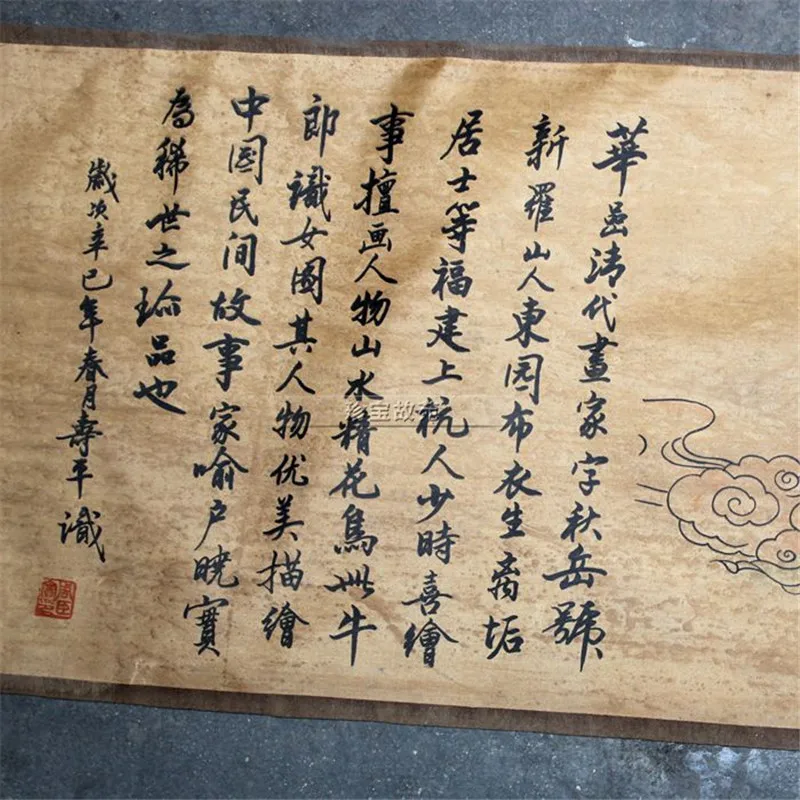 華喦清代畫家字秋岳號
新羅山人東园布衣生离垢
居士等福建上杭人少時喜繪
事擅画人物山水精花鳥此牛
郎識女圖其人物优美描繪
中国民间故事家喻户曉實
為稀世之瑜品也
歲次辛巳年春月壽平識
珍宝故